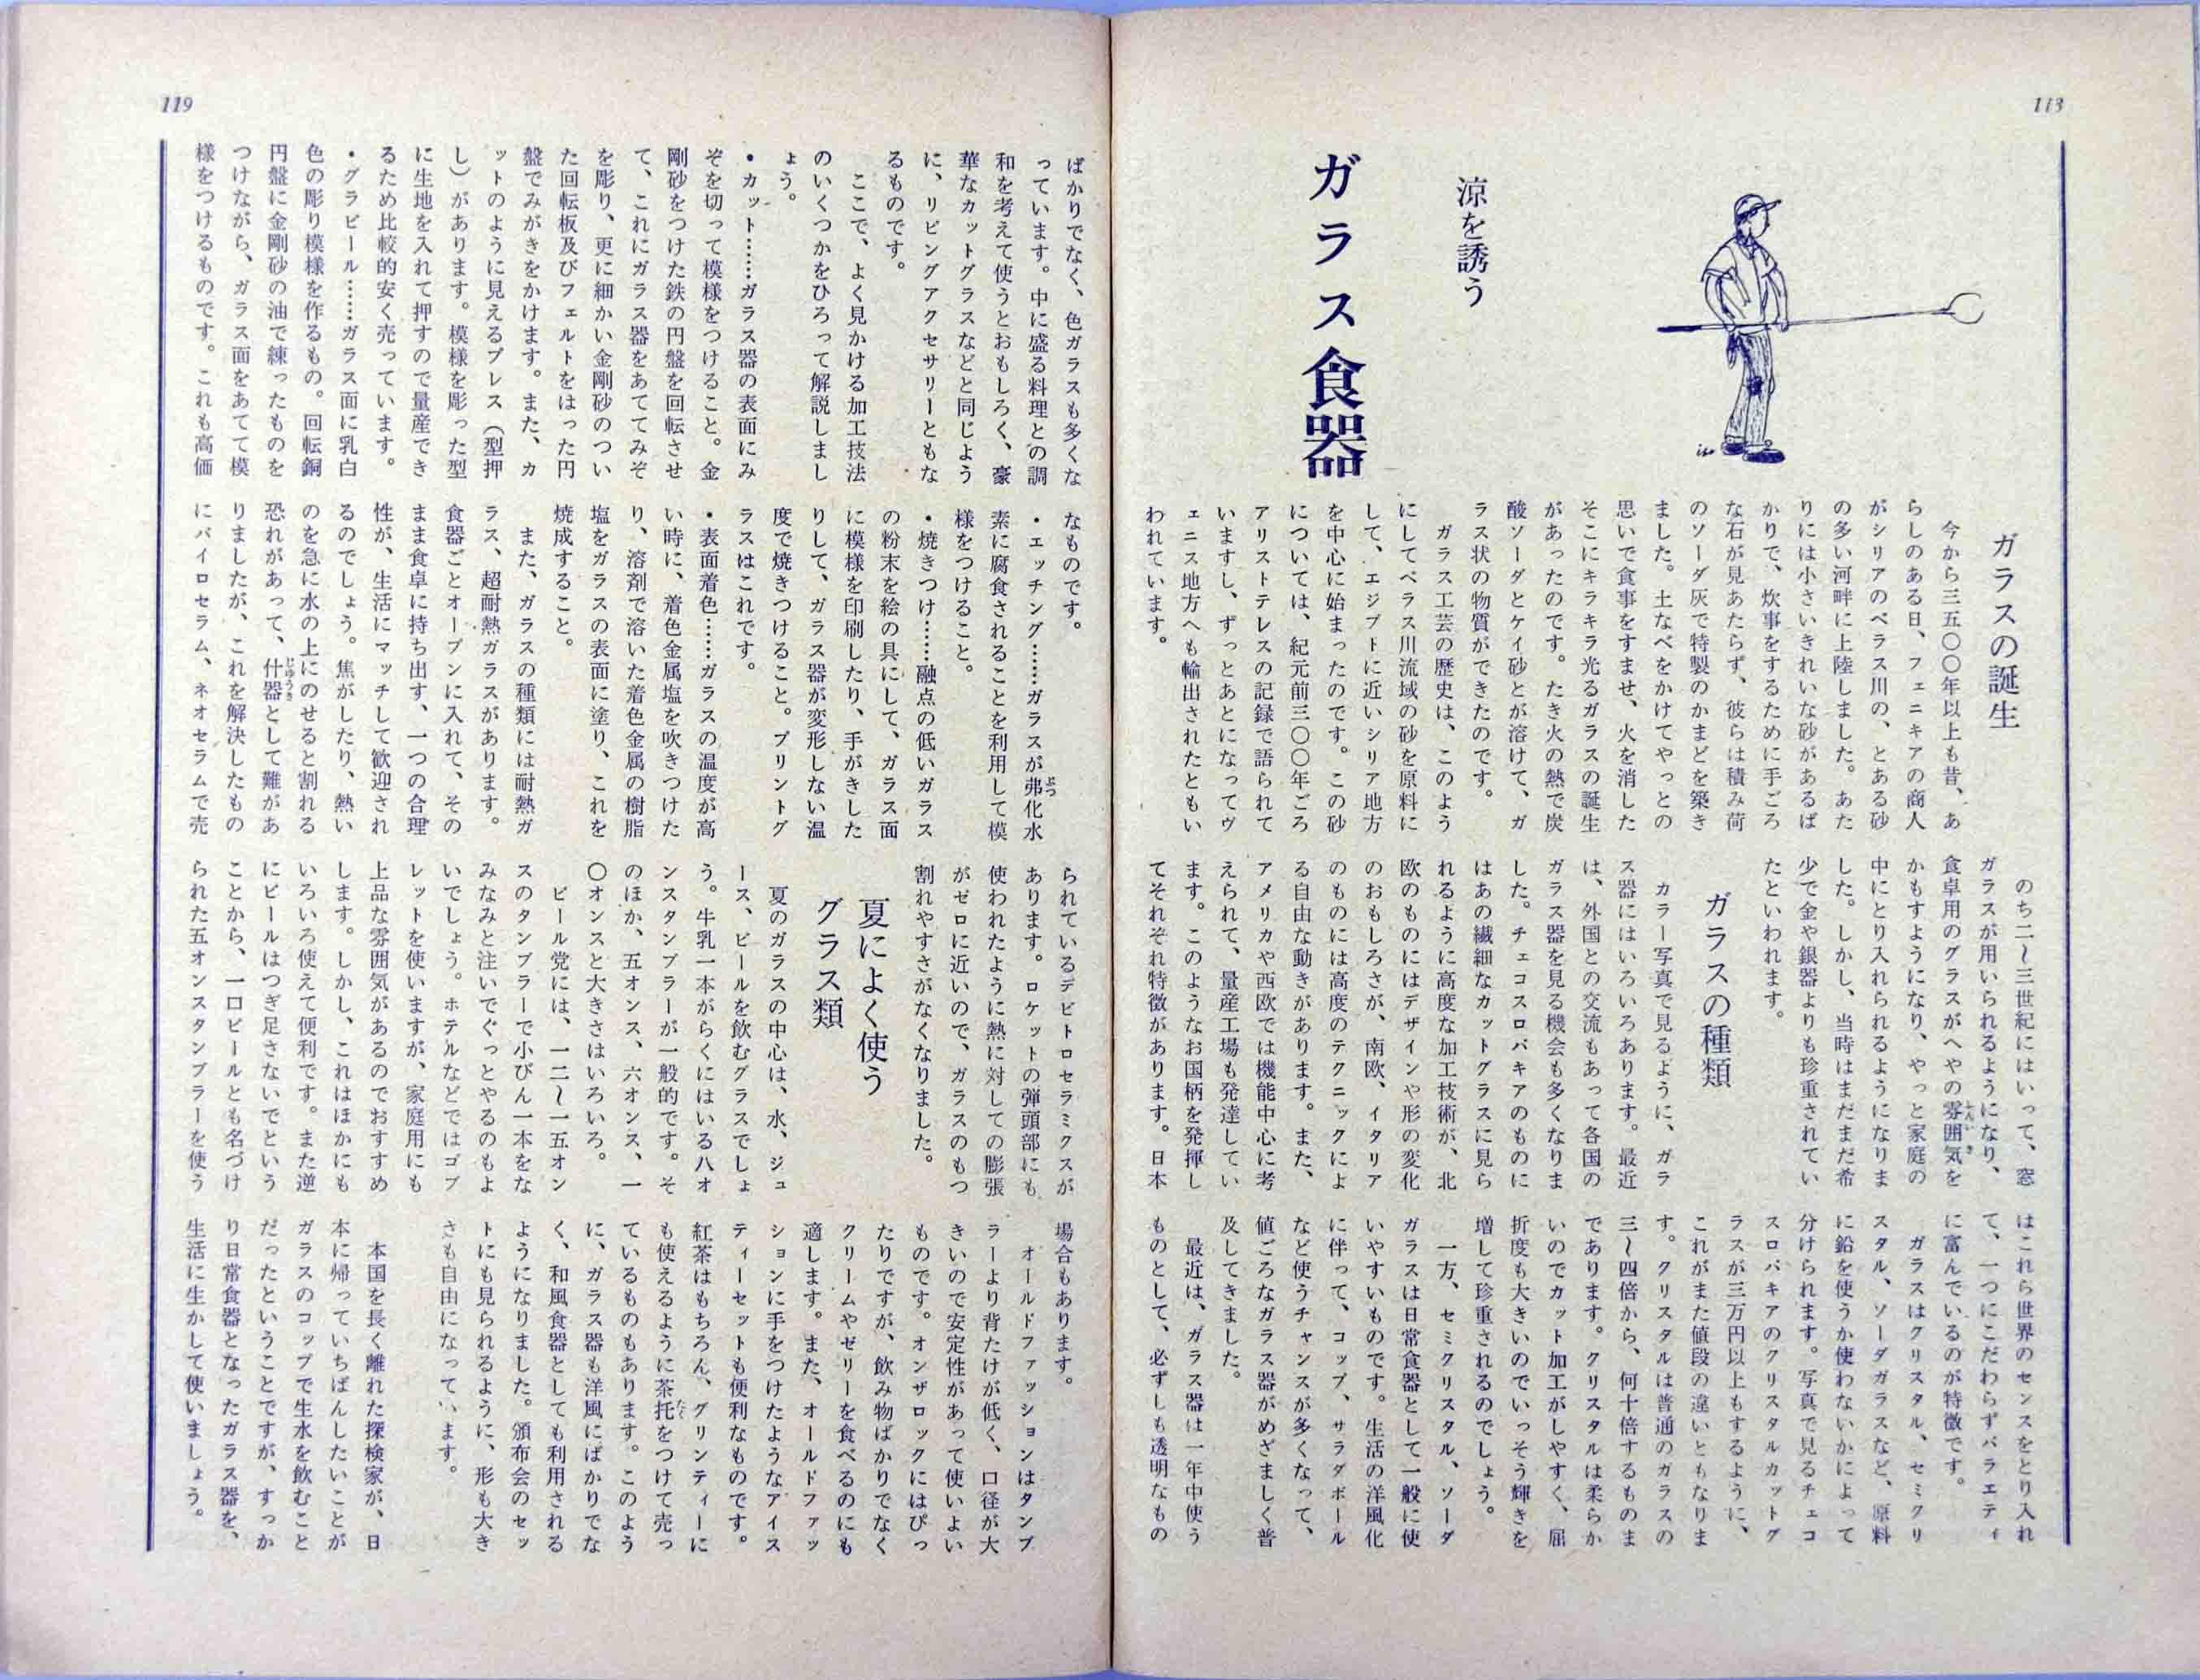 113
涼を誘う
ガラス食器
ガラスの誕生
今から三五〇〇年以上も昔、あ
らしのある日、フェニキアの商人
がシリアのベラス川の、とある砂
の多い河畔に上陸しました。あた
りには小さいきれいな砂があるば
かりで、炊事をするために手ごろ
な石が見あたらず、彼らは積み荷
のソーダ灰で特製のかまどを築き
ました。土なべをかけてやっとの
思いで食事をすませ、火を消した
そこにキラキラ光るガラスの誕生
があったのです。たき火の熱で炭
酸ソーダとケイ砂とが溶けて、ガ
ラス状の物質ができたのです。
ガラス工芸の歴史は、このよう
にしてベラス川流域の砂を原料に
して、エジプトに近いシリア地方
を中心に始まったのです。この砂
については、紀元前三〇〇年ごろ
アリストテレスの記録で語られて
いますし、ずっとあとになってヴ
ェニス地方へも輸出されたともい
われています。
のち二〜三世紀にはいって、窓
ガラスが用いられるようになり、
食卓用のグラスがへやの雰囲気を
かもすようになり、やっと家庭の
中にとり入れられるようになりま
した。しかし、当時はまだまだ希
少で金や銀器よりも珍重されてい
たといわれます。
ガラスの種類
カラー写真で見るように、ガラ
ス器にはいろいろあります。最近
は、外国との交流もあって各国の
ガラス器を見る機会も多くなりま
した。チェコスロバキアのものに
はあの繊細なカットグラスに見ら
れるように高度な加工技術が、北
欧のものにはデザインや形の変化
のおもしろさが、南欧、イタリア
のものには高度のテクニックによ
る自由な動きがあります。また、
アメリカや西欧では機能中心に考
えられて、量産工場も発達してい
ます。このようなお国柄を発揮し
てそれぞれ特徴があります。日本
はこれら世界のセンスをとり入れ
て、一つにこだわらずバラエティ
に富んでいるのが特徴です。
ガラスはクリスタル、セミクリ
スタル、ソーダガラスなど、原料
に鉛を使うか使わないかによって
分けられます。写真で見るチェコ
スロバキアのクリスタルカットグ
ラスが三万円以上もするように、
これがまた値段の違いともなりま
す。クリスタルは普通のガラスの
三〜四倍から、何十倍するものま
であります。クリスタルは柔らか
いのでカット加工がしやすく、屈
折度も大きいのでいっそう輝きを
増して珍重されるのでしょう。
一方、セミクリスタル、ソーダ
ガラスは日常食器として一般に使
いやすいものです。生活の洋風化
に伴って、コップ、サラダボール
など使うチャンスが多くなって、
値ごろなガラス器がめざましく普
及してきました。
最近は、ガラス器は一年中使う
ものとして、必ずしも透明なもの
119
ばかりでなく、色ガラスも多くな
っています。中に盛る料理との調
和を考えて使うとおもしろく、豪
華なカットグラスなどと同じよう
に、リビングアクセサリーともな
るものです。
ここで、よく見かける加工技法
のいくつかをひろって解説しまし
ょう。
・カット……ガラス器の表面にみ
ぞを切って模様をつけること。金
剛砂をつけた鉄の円盤を回転させ
て、これにガラス器をあててみぞ
を彫り、更に細かい金剛砂のつい
た回転板及びフェルトをはった円
盤でみがきをかけます。また、カ
ットのように見えるプレス（型押
し）があります。模様を彫った型
に生地を入れて押すので量産でき
るため比較的安く売っています。
・グラビール……ガラス面に乳白
色の彫り模様を作るもの。回転銅
円盤に金剛砂の油で練ったものを
つけながら、ガラス面をあてて模
様をつけるものです。これも高価
なものです。
・エッチング……ガラスが弗化水
素に腐食されることを利用して模
様をつけること。
・焼きつけ……融点の低いガラス
の粉末を絵の具にして、ガラス面
に模様を印刷したり、手がきした
りして、ガラス器が変形しない温
度で焼きつけること。プリントグ
ラスはこれです。
・表面着色……ガラスの温度が高
い時に、着色金属塩を吹きつけた
り、溶剤で溶いた着色金属の樹脂
塩をガラスの表面に塗り、これを
焼成すること。
また、ガラスの種類には耐熱ガ
ラス、超耐熱ガラスがあります。
食器ごとオーブンに入れて、その
まま食卓に持ち出す、一つの合理
性が、生活にマッチして歓迎され
るのでしょう。焦がしたり、熱い
のを急に水の上にのせると割れる
恐れがあって、什器として難があ
りましたが、これを解決したもの
にパイロセラム、ネオセラムで売
られているデビトロセラミクスが
あります。ロケットの弾頭部にも
使われたように熱に対しての膨張
がゼロに近いので、ガラスのもつ
割れやすさがなくなりました。
夏によく使う
グラス類
夏のガラスの中心は、水、ジュ
ース、ビールを飲むグラスでしょ
う。牛乳一本がらくにはいる八オ
ンスタンブラーが一般的です。そ
のほか、五オンス、六オンス、一
〇オンスと大きさはいろいろ。
ビール党には、一二〜一五オン
スのタンブラーで小びん一本をな
みなみと注いでぐっとやるのもよ
いでしょう。ホテルなどではゴブ
レットを使いますが、家庭用にも
上品な雰囲気があるのでおすすめ
します。しかし、これはほかにも
いろいろ使えて便利です。また逆
にビールはつぎ足さないでという
ことから、一口ビールとも名づけ
られた五オンスタンブラーを使う
場合もあります。
オールドファッションはタンブ
ラーより背たけが低く、口径が大
きいので安定性があって使いよい
ものです。オンザロックにはぴっ
たりですが、飲み物ばかりでなく
クリームやゼリーを食べるのにも
適します。また、オールドファッ
ションに手をつけたようなアイス
ティーセットも便利なものです。
紅茶はもちろん、グリンティーに
も使えるように茶托をつけて売っ
ているものもあります。このよう
に、ガラス器も洋風にばかりでな
く、和風食器としても利用される
ようになりました。頒布会のセッ
トにも見られるように、形も大き
さも自由になっています。
本国を長く離れた探検家が、日
本に帰っていちばんしたいことが
ガラスのコップで生水を飲むこと
だったということですが、すっか
り日常食器となったガラス器を、
生活に生かして使いましょう。